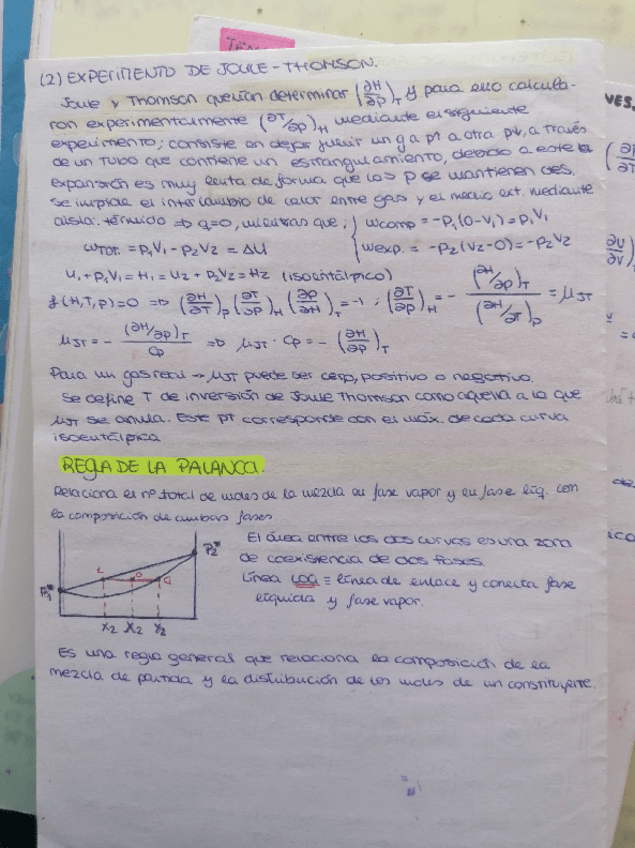 (2) EXPERIMENTO DE JOULE-THOMSON.
Joule y Thomson querían determinar (∂H/∂p)T y para ello calcula-
ron experimentalmente (∂T/∂p)H mediante el siguiente
experimento; consiste en dejar fluir un g a p1 a otra p↓, a través
de un tubo que contiene un estrangulamiento, debido a este la
expansión es muy lenta de forma que las p se mantienen ctes.
Se impide el intercambio de calor entre gas y el medio ext. mediante
aisla. térmico => q=0, mientras que; { wcomp = -P1(0-V1) = P1V1
wTOT. = P1V1 - P2V2 = ΔU wexp. = -P2(V2-0) = -P2V2
U1 + P1V1 = H1 = U2 + P2V2 = H2 (isoentálpico)
f(H,T,p)=0 => (∂H/∂T)p (∂T/∂p)H (∂p/∂H)T = -1; (∂T/∂p)H = - (∂H/∂p)T / (∂H/∂T)p = μJT
μJT = - (∂H/∂p)T / Cp => μJT · Cp = - (∂H/∂p)T
Para un gas real → μJT puede ser cero, positivo o negativo.
Se define T de inversión de Joule Thomson como aquella a la que
μJT se anula. Este pt corresponde con el máx. de cada curva
isoentálpica
REGLA DE LA PALANCA.
Relaciona el nº total de moles de la mezcla en fase vapor y en fase líq. con
la composición de ambas fases
El área entre las dos curvas es una zona
de coexistencia de dos fases.
Línea LOG ≡ línea de enlace y conecta fase
líquida y fase vapor.
P2*
P1*
L O G
X2 X2 Y2
Es una regla general que relaciona la composición de la
mezcla de partida y la distribución de los moles de un constituyente.